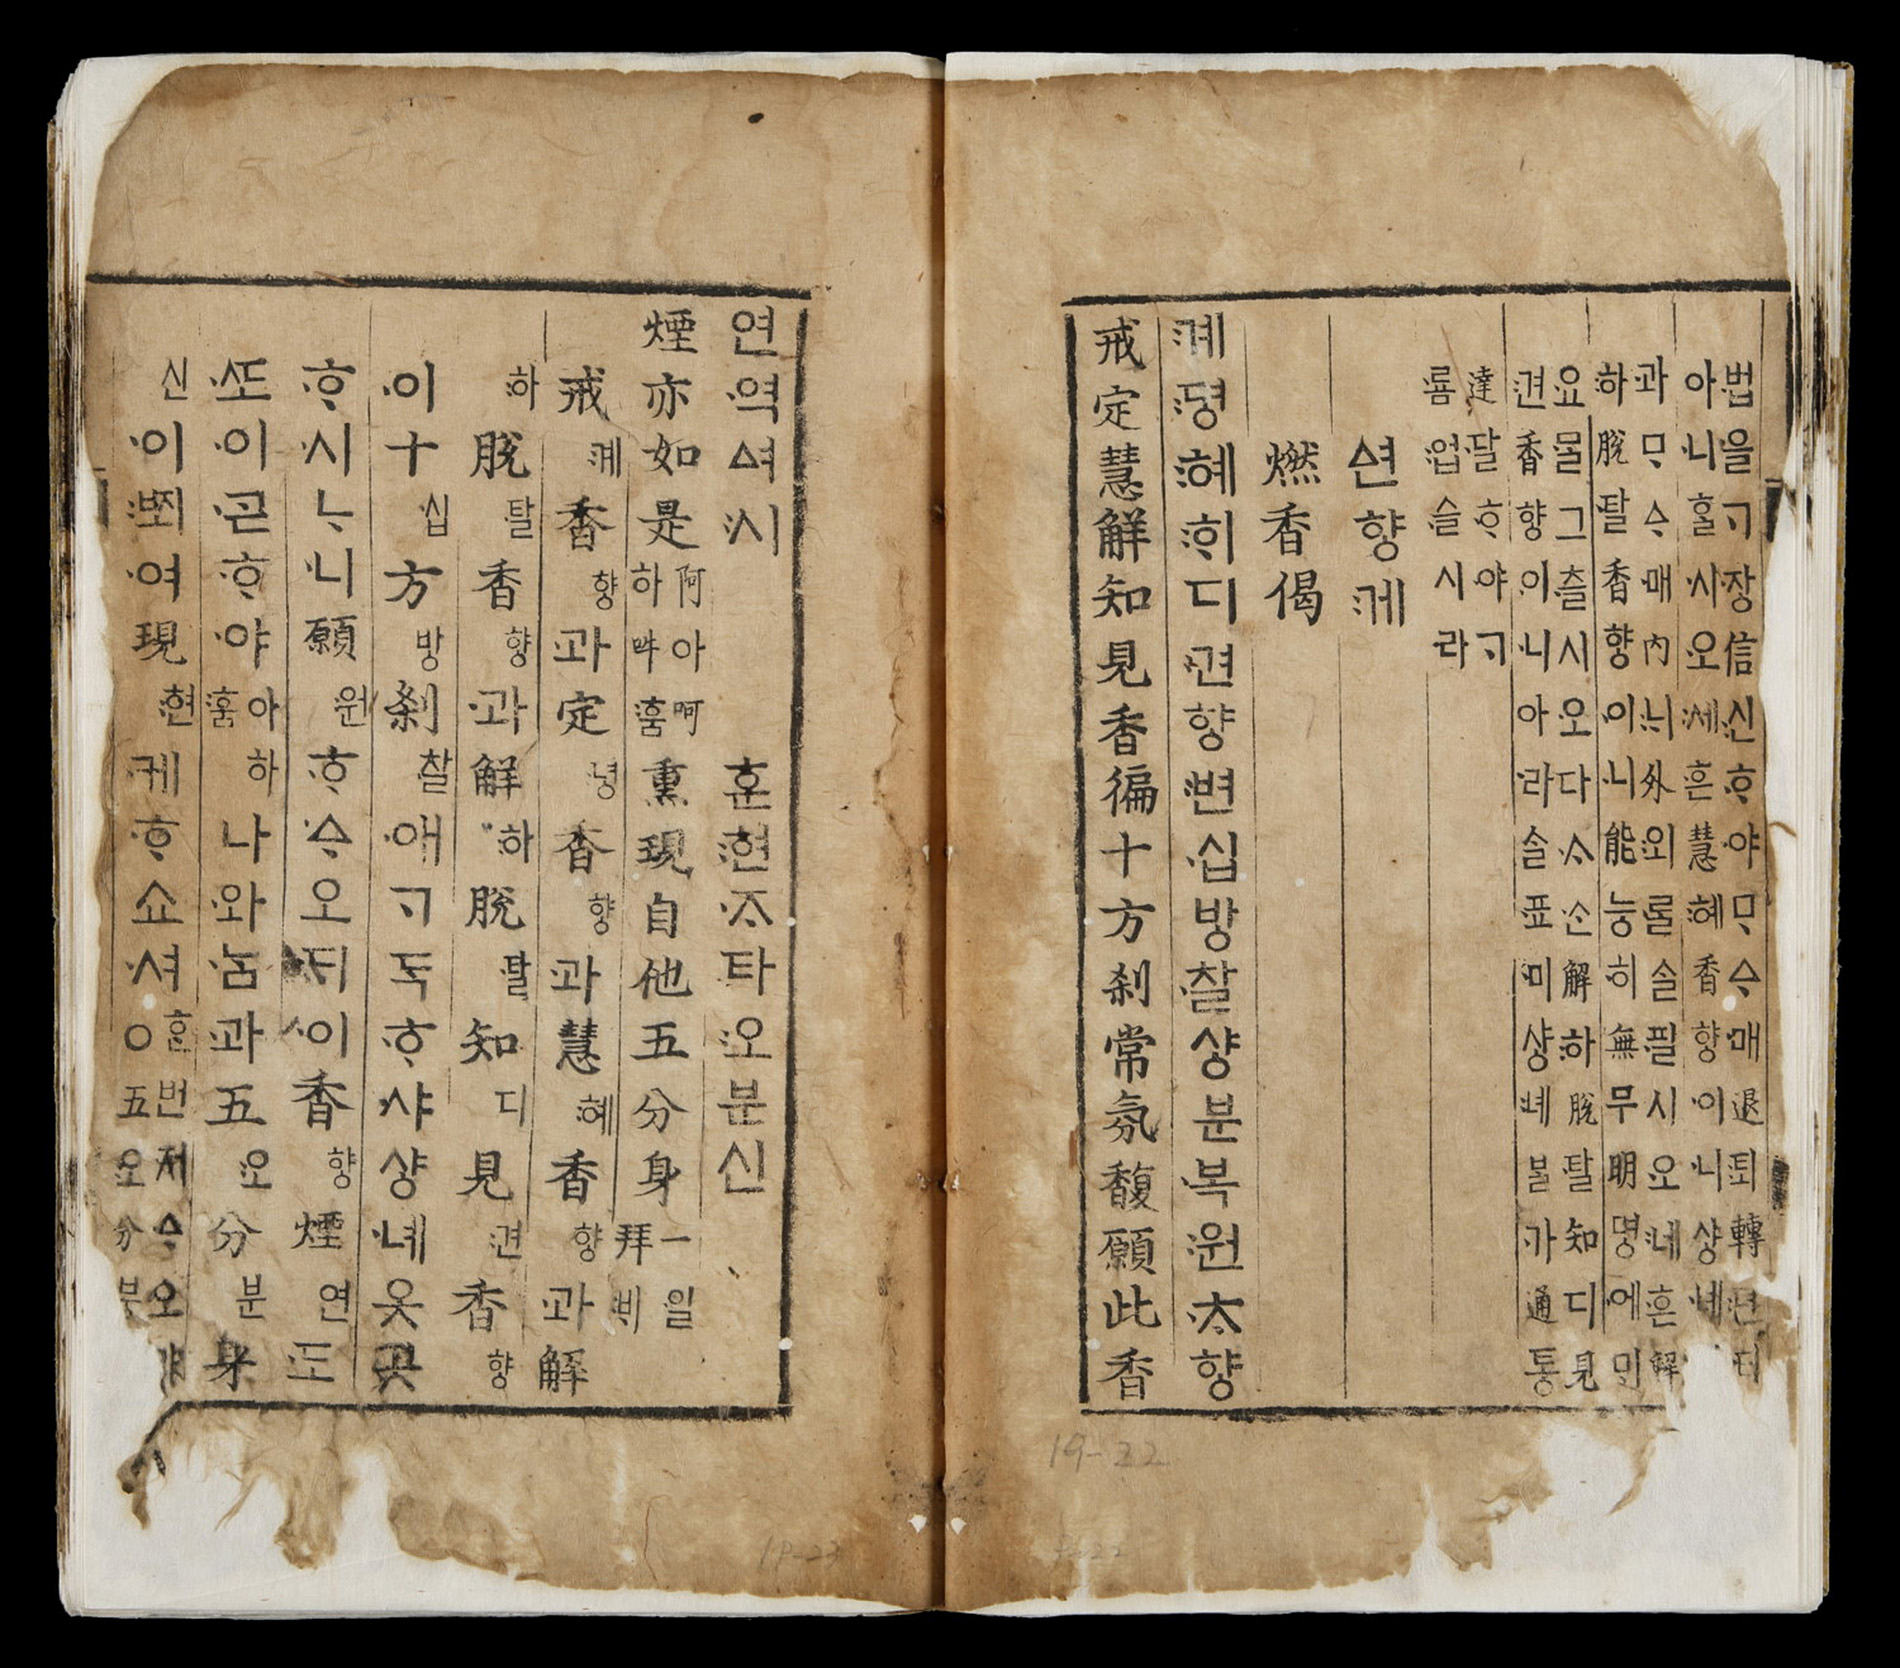 법을ᄀᆞ장信신ᄒᆞ야ᄆᆞᅀᆞ매退퇴轉뎐티
아니홀사오세흔慧혜香향이니샹녜
과ᄆᆞᅀᆞ매內ᄂᆡ外외ᄅᆞᆯ솔필시오네흔解
하脫탈香향이니能능히無무明명에민
요ᄆᆞᆯ그츨시오다ᄉᆞᄉᆞᆫ解하脫탈知디見
견香향이니아라ᄉᆞᆯ표미샹녜ᄇᆞᆯ가通통
達달ᄒᆞ야ᄀᆞ
룜업슬시라
ᅀᅧᆫ향게
燃香偈
계뎡혜ᄒᆡ디견향변십방찰샹분복원ᄎᆞ향
戒定慧解知見香徧十方刹常氛馥願此香
연역ᅀᅧ시 훈현ᄌᆞ타오분신
煙亦如是阿아呵하吽훔熏現自他五分身一일拜비
戒계香향과定뎡香향과慧혜香향과解
하脫탈香향과解하脫탈知디見견香향
이十십方방刹찰애ᄀᆞ독ᄒᆞ샤샹녜옷곳
ᄒᆞ시ᄂᆞ니願원ᄒᆞᅀᆞ오ᄃᆡ이香향煙연도
ᄯᅩ이ᄀᆞᆮᄒᆞ야아하훔나와ᄂᆞᆷ과五오分분身
신이ᄧᅬ여現현케ᄒᆞ쇼셔ᄒᆞᆫ번저ᅀᆞ오야○五오分분
19-22
19-23